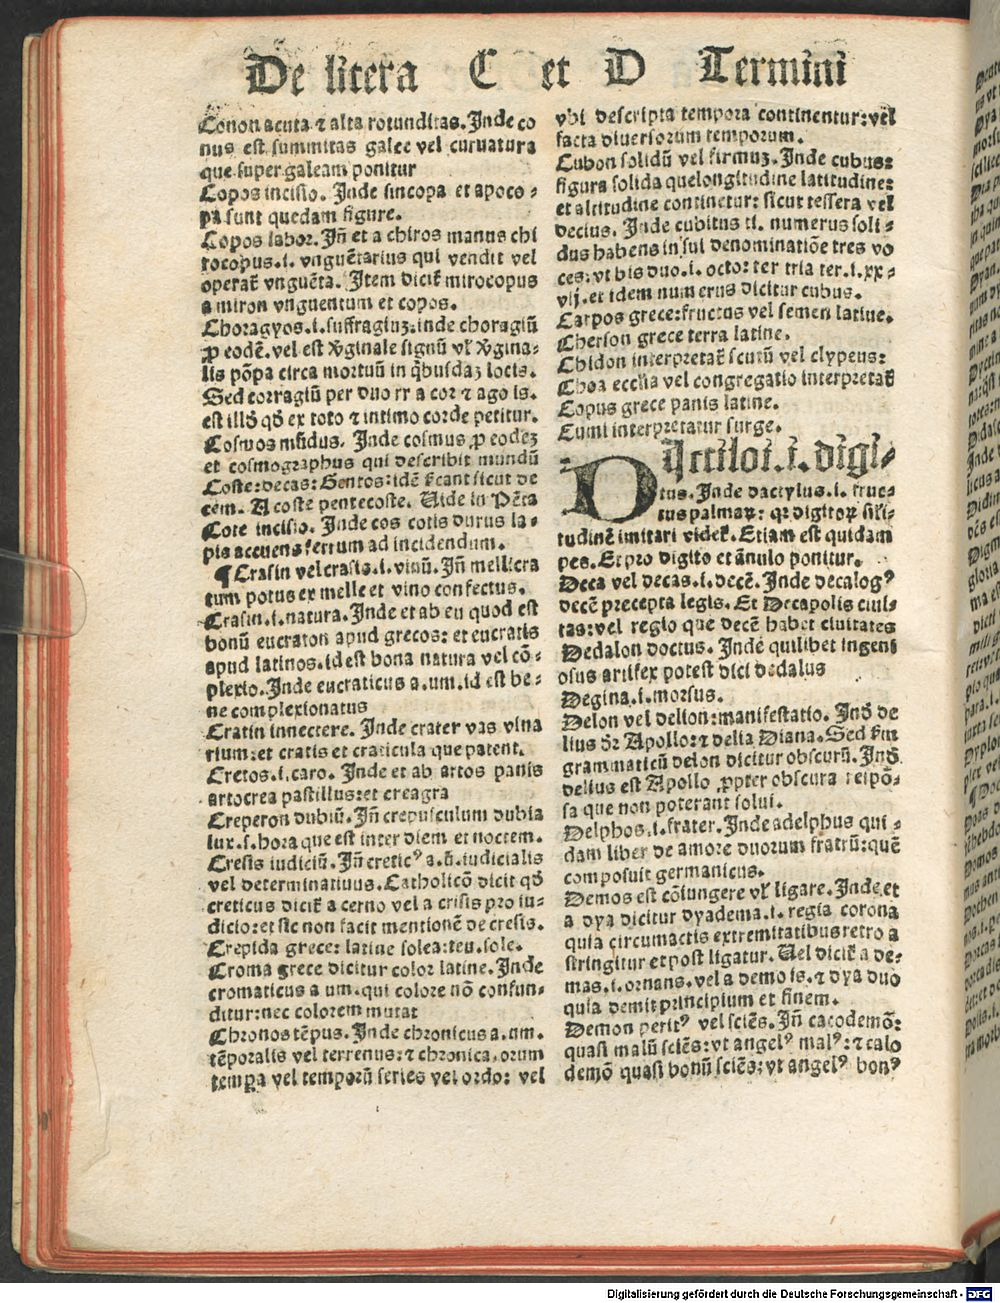 De litera C et D Termini
Conon acuta ⁊ alta rotunditas. Inde co
nus est summitas galee vel curuatura
que super galeam ponitur
Copos incisio. Inde sincopa et apoco⸗
pa sunt quedam figure.
Copos labor. Iñ et a chiros manus chi
rocopus .i. vnguẽtarius qui vendit vel
operat᷑ vnguẽta. Item dicit᷑ mirocopus
a miron vnguentum et copos.
Choragyos .i. suffragiuȝ. inde choragiũ
ꝓ eodẽ. vel est v̓ginale signũ vl̓ v̓gina⸗
lis põpa circa mortuũ in q̇busdaȝ locis.
Sed corragiũ per duo rr a cor ⁊ ago is.
est illđ qđ ex toto ⁊ intimo corde petitur.
Cosmos mũdus. Inde cosmus ꝓ eodeȝ
et cosmographus qui describit mundũ
Coste: decas: Gentos: idẽ s̓cant sicut de
cem. A coste pentecoste. Uide in Pẽta
Cote incisio. Inde cos cotis durus la⸗
pis accuens ferrum ad incidendum.
¶ Crasin vel crasis .i. vinũ. Iñ mellicra
tum potus ex melle et vino confectus.
Crasin .i. natura. Inde et ab eu quod est
bonũ eucraton apud grecos: et eucratis
apud latinos. id est bona natura vel cõ⸗
plexio. Inde eucraticus a. um. id est be⸗
ne complexionatus
Cratin innectere. Inde crater vas vina
rium: et cratis et craticula que patent.
Cretos .i. caro. Inde et ab artos panis
artocrea pastillus: et creagra
Creperon dubiũ. Iñ crepusculum dubia
lux. s. hora que est inter diem et noctem.
Cresis iudiciũ. Iñ creticꝰ a. ũ. iudicialis
vel determinatiuus. Catholicõ dicit qđ
creticus dicit᷑ a cerno vel a crisis pro iu⸗
dicio: et sic non facit mentionẽ de cresis.
Crepida grece: latine solea: teu. sole.
Croma grece dicitur color latine. Inde
cromaticus a um. qui colore nõ confun⸗
ditur: nec colorem mutat
Chronos tẽpus. Inde chronicus a. um.
tẽporalis vel terrenus: ⁊ chronica, orum
tempa vel temporũ series vel ordo: vel
vbi descripta tempora continentur: vel
facta diuersorum temporum.
Cubon solidũ vel firmuȝ. Inde cubus:
figura solida que longitudine latitudine:
et altitudine continetur: sicut tessera vel
decius. Inde cubitus ti. numerus soli⸗
dus habens in sui denominatiõe tres vo
ces: vt bis duo .i. octo: ter tria ter .i. xx⸗
vij. et idem numerus dicitur cubus.
Carpos grece: fructus vel semen latine.
Cherson grece terra latine.
Chidon interpretat᷑ scutũ vel clypeus:
Choa ecclia vel congregatio interpretat᷑
Copus grece panis latine.
Cumi interpretatur surge.
Dactiloi .i. digi⸗
tus. Inde dactylus .i. fruc⸗
tus palmaꝝ: qꝛ digitoꝝ sil̓i⸗
tudinẽ imitari videt᷑. Etiam est quidam
pes. Et pro digito et ãnulo ponitur.
Deca vel decas .i. decẽ. Inde decalogꝰ
decẽ precepta legis. Et Decapolis ciui⸗
tas: vel regio que decẽ habet ciuitates
Dedalon doctus. Inde quilibet ingeni
osus artifex potest dici dedalus
Degina .i. morsus.
Delon vel delion: manifestatio. Inđ de
lius dr̓ Apollo: ⁊ delia Diana. Sed s̓m
grammaticũ delon dicitur obscurũ. Inđ
delius est Apollo ꝓpter obscura respõ⸗
sa que non poterant solui.
Delphos .i. frater. Inde adelphus qui⸗
dam liber de amore duorum fratrũ: quẽ
composuit germanicus.
Demos est cõiungere vl̓ ligare. Inde et
a dya dicitur dyadema .i. regia corona
quia circumactis extremitatibus retro a
stringitur et post ligatur. Uel dicit᷑ a de⸗
mas .i. ornans. vel a demo is. ⁊ dya duo
quia demit principium et finem.
Demon peritꝰ vel sciẽs. Iñ cacodemõ:
quasi malũ sciẽs: vt angelꝰ malꝰ: ⁊ calo
demõ quasi bonũ sciẽs: vt angelꝰ bonꝰ
Digitalisierung gefördert durch die Deutsche Forschungsgemeinschaft - DFG